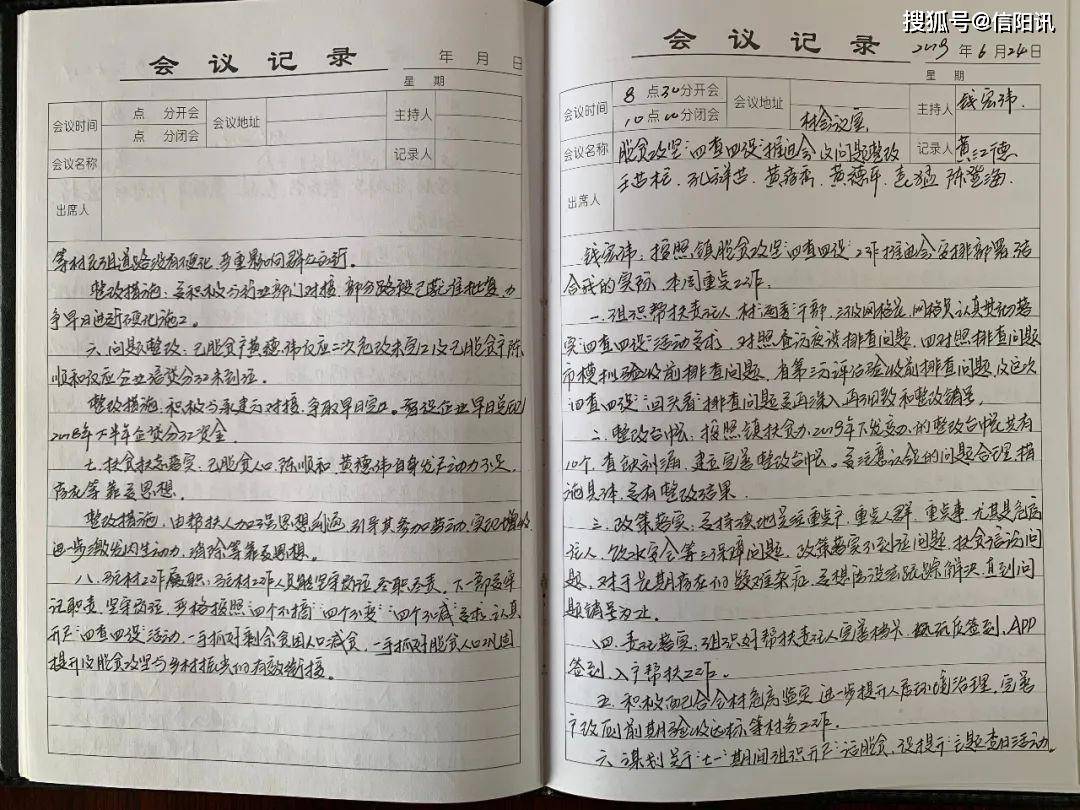 搜狐号@信阳讯
会议记录
年 月 日
星 期
会议时间 点 分开会 会议地址 主持人
点 分闭会
会议名称 记录人
出席人
等村民组道路没有硬化,严重影响群众出行。
整改措施:要积极与行业部门对接,部分路段已批准批复,力
争早日进场硬化施工。
六、问题整改:已脱贫户黄德伟反应二次危改未完工及已脱贫户陈
顺和反应企业带贫分红未到位。
整改措施:积极与承建方对接,争取早日完工。督促企业早日兑现
2018年下半年企贷分红资金。
七、扶贫扶志落实:已脱贫人口陈顺和、黄德伟自身发展动力不足,
存在等靠要思想。
整改措施:由帮扶人加强思想沟通,引导其参加劳动,实现增收
进一步激发内生动力,消除等靠要思想。
八、驻村工作履职:驻村工作人员能坚守岗位,尽职尽责,下一部要牢
记职责,坚守岗位,严格按照“四个不摘”“四个不变”“四个不减”要求,认真
开展“四查四促”活动,一手抓好剩余贫困人口减贫,一手抓好脱贫人口巩固
提升及脱贫攻坚与乡村振兴的有效衔接。
会议记录
2019年6月24日
星 期
会议时间 8点30分开会 会议地址 村会议室 主持人 钱宏伟
10点10分闭会
会议名称 脱贫攻坚“四查四促”推进会及问题整改 记录人 黄江德
出席人 孔祥 黄德 袁猛 陈
钱宏伟:按照镇脱贫攻坚“四查四促”工作推进会安排部署,结
合我的实际,本周重点工作。
一、组织帮扶责任人、村两委干部、三级网格员、网格员认真扎实落
实“四查四促”活动要求,对照 排查问题,四对照排查问题
市模拟验收前排查问题,省第三方评估验收前排查问题,及这次
“四查四促”“回头看”排查问题要再深入再细致和整改销号。
二、整改台帐:按照镇扶贫办2019年下发 的整改台帐共有
10个,查缺补漏,建立完善整改台帐。要注意认领的问题合理,措
施具体,要有整改结果。
三、政策落实:要持续地关注重点户、重点人群、重点事,尤其是危房
住人、饮水安全等三保障问题,政策落实不到位问题,扶贫信访问
题,对于长期存在的疑难杂症,要想法设法跟踪解决,直到问
题销号为止。
四、责任落实:组织好帮扶责任人完善档卡, 签到,APP
签到,入户帮扶工作。
五、积极配合全村危房鉴定,进一步提升人居环境治理,完善
户改厕前期验收达标等村务工作。
六、谋划关于“七一”期间组织开展“话脱贫、促提升”主题党日活动。